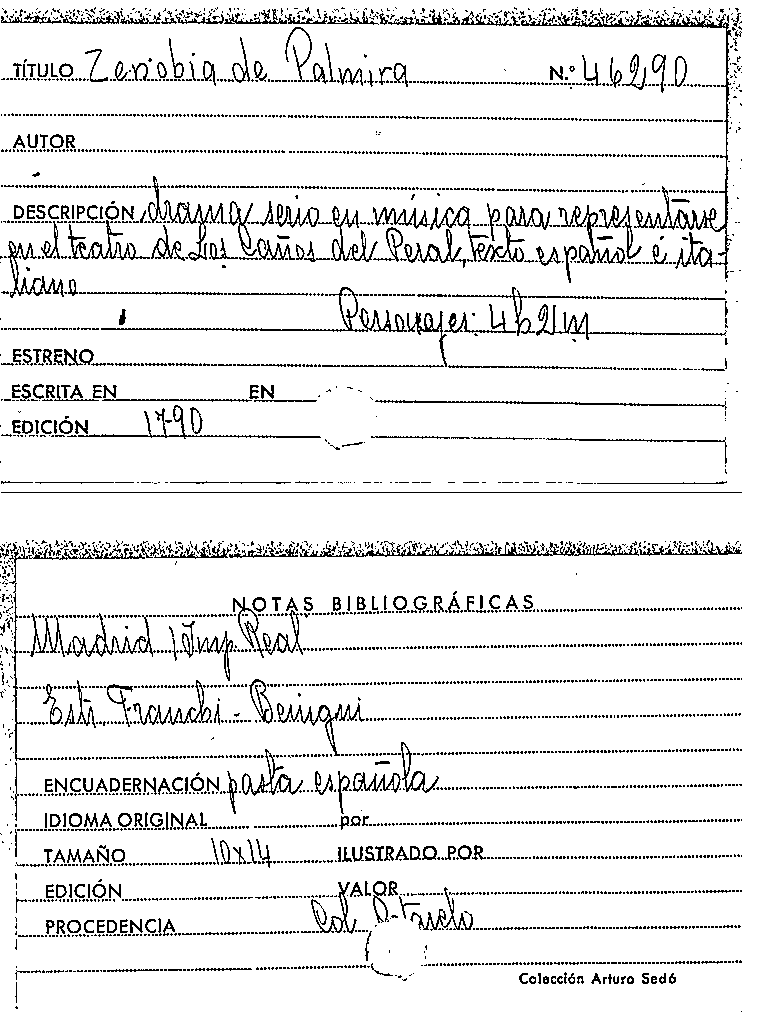 TÍTULO Zenobia de Palmira N.º 46290
AUTOR
DESCRIPCIÓN drama serio en música para representarse
en el teatro de los Caños del Peral, texto español é ita-
liano
Personajes: 4h 2/m
ESTRENO
ESCRITA EN EN
EDICIÓN 1790
NOTAS BIBLIOGRÁFICAS
Madrid / Imp Real
Estr Franchi - Benigni
ENCUADERNACIÓN pasta española
IDIOMA ORIGINAL por
TAMAÑO 10x14 ILUSTRADO POR
EDICIÓN VALOR
PROCEDENCIA Col
Colección Arturo Sedó